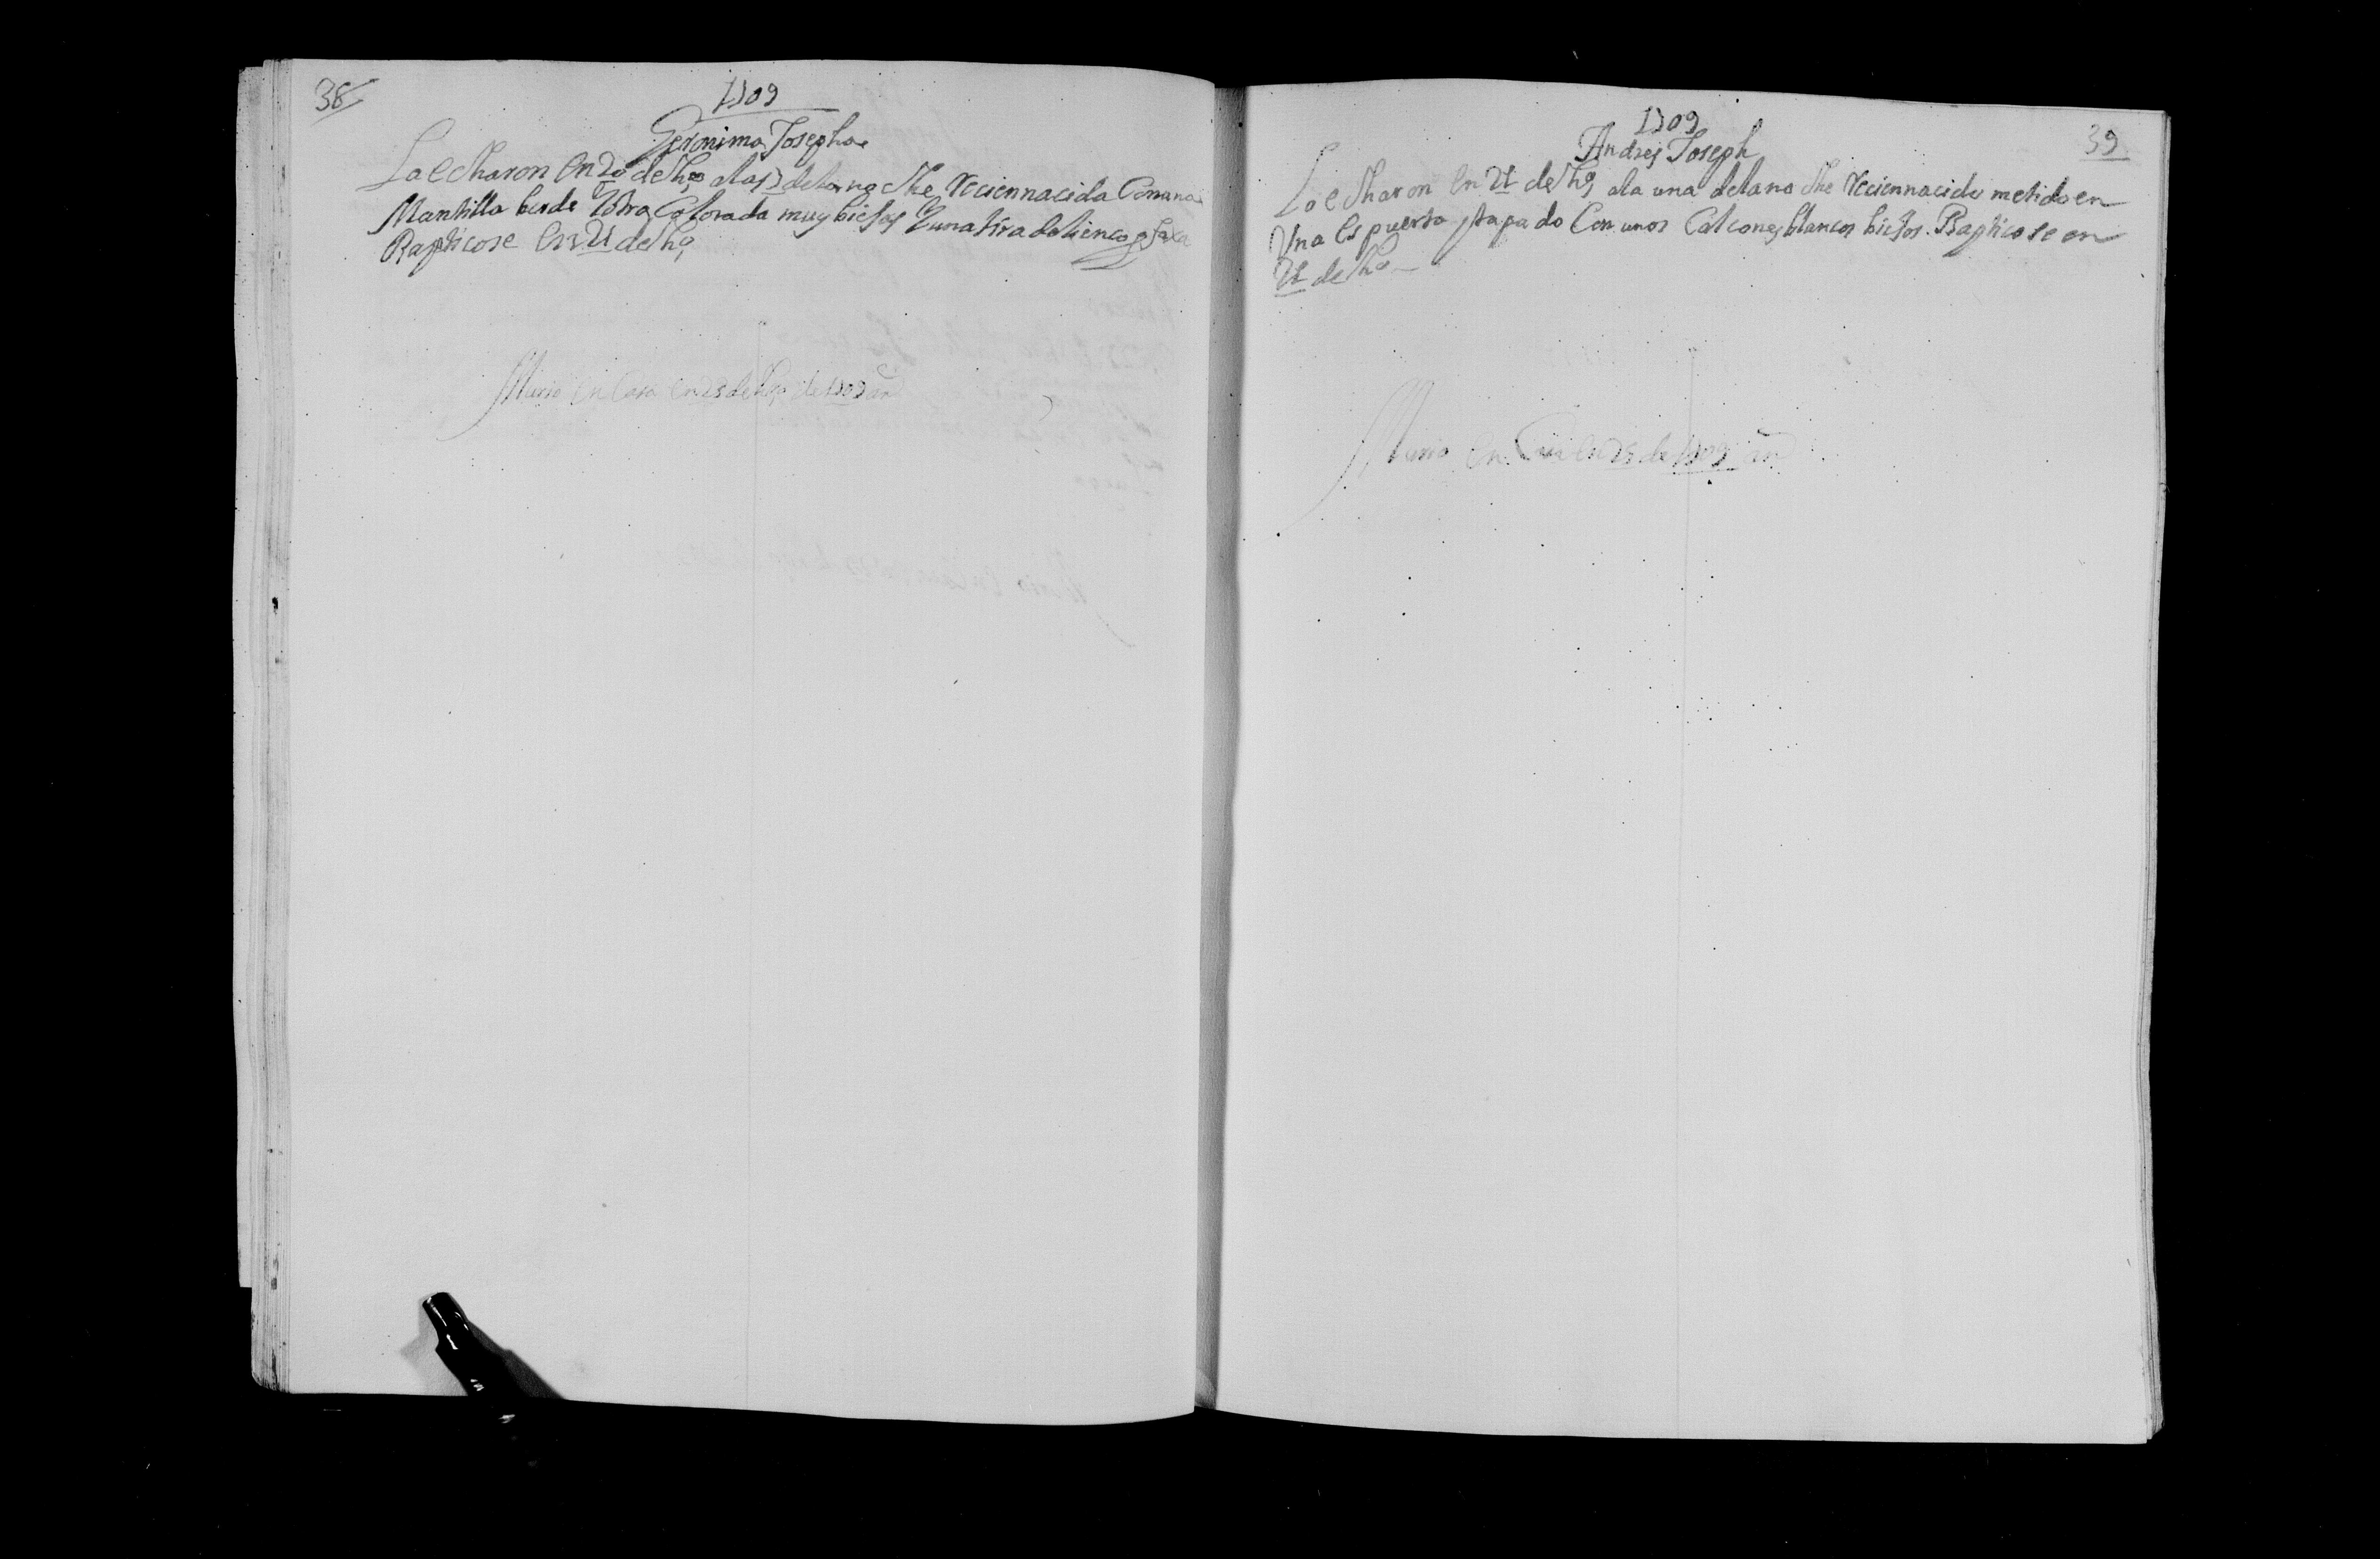 38
1709
Geronima Josepha
La echaron en 20 de h.º a las 7 de la noche Reciennacida Con una
Mantilla berde Y otra Colorada muy biejas Y una tira de lienco p faxa
Bapticose en 21 de h.º
Murio en Casa en 25 de h.º de 1709 añ
1709
39
Andres Joseph
Lo echaron en 21 de h.º a la una de la noche Reciennacido metido en
Una espuerta y tapado Con unos Calcones blancos biejos. Bapticose en
21 de h.º
Murio en Casa en 25 de 1709 añ